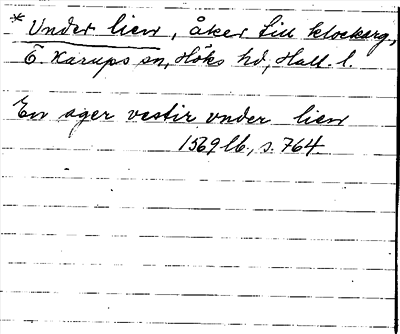 * Under lien, åker till klockarg,
Ö. Karups sn, Höks hd, Hall. l.
En ager vestir vnder lien
1569 lb, s. 764.